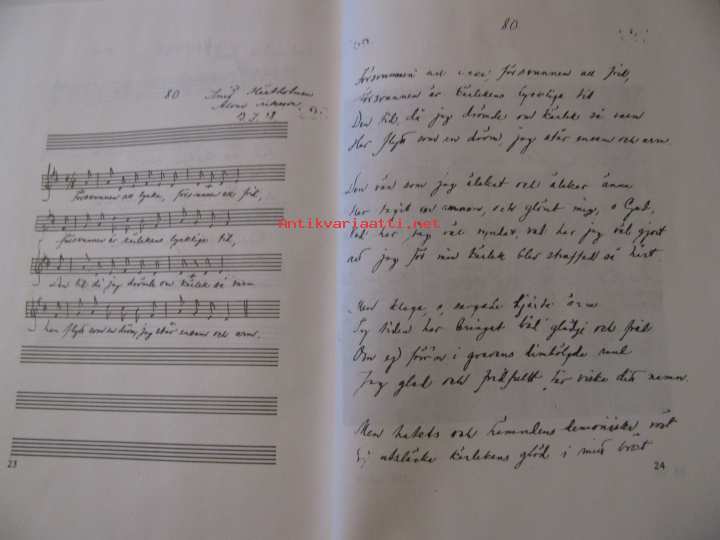 80
13.I.18
Försvunnen all lycka, försvunnen all frid,
försvunnen är kärlekens lyckliga tid,
Den tid, då jag drömde om kärlek så varm
har flytt som en dröm, jag står ensam och arm.
23
80
Försvunnen all försvunnen all frid,
försvunnen är kärlekens lyckliga tid
Den tid, då jag drömde om kärlek så varm
Har flytt som en dröm, jag står ensam och arm.
Den vän som jag älskat och älskar ännu
Har tagit en annan, och glömt mig, o Gud,
Vad har jag väl syndat, vad har jag väl gjort
att jag för min kärlek blir straffad så hårt.
Men klaga, o, sargade hjärta
Ty tiden har bringat både glädje och
Om ej förr'n i gravens
Jag glad och fridfullt får viska ditt namn.
Men hatets och hämndens demoniska röst
Ej utsläcka kärlekens glöd i mitt bröst
24
Antikvariaatti.net